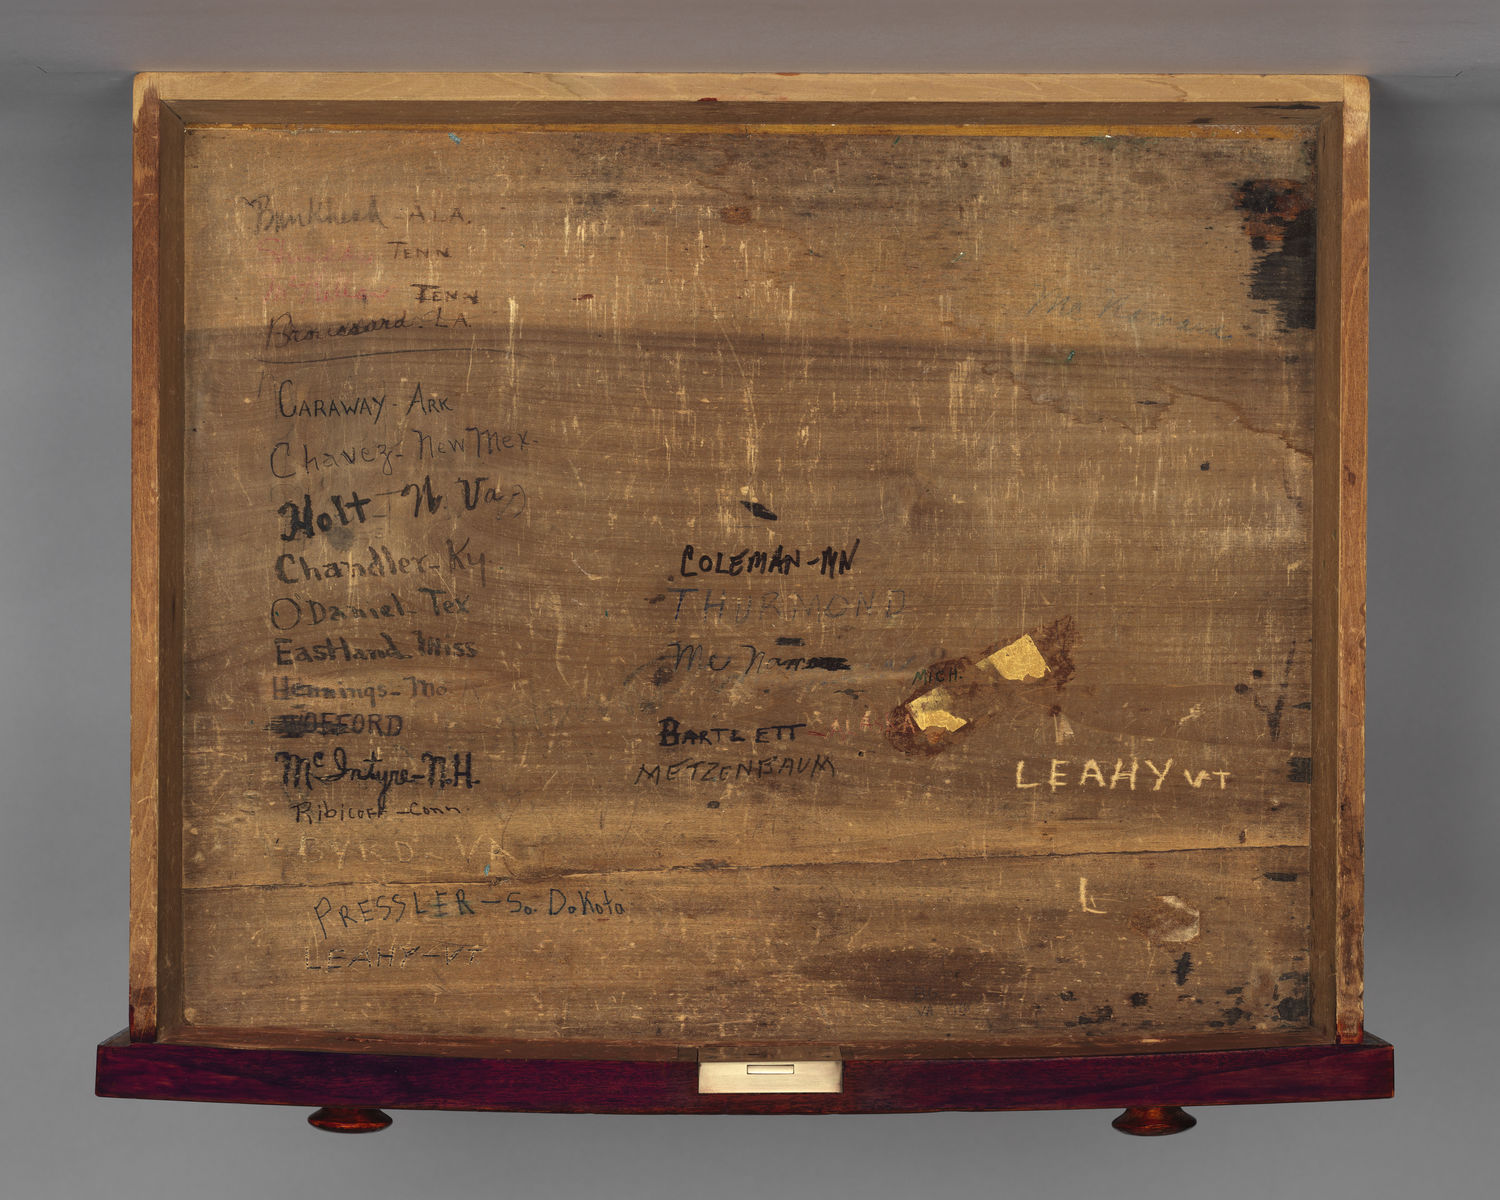 Bankhead - ALA.
TENN
McKellar TENN
Broussard. LA.
CARAWAY - ARK
Chavez - New Mex.
Holt - W. Va.
Chandler - Ky
O'Daniel - Tex
Eastland Miss
Hennings - Mo
WOFFORD
McIntyre - N.H.
Ribicoff - Conn
BYRD - VA
PRESSLER - So. DaKota
LEAHY - VT
COLEMAN - MN
THURMOND
Mc Nam
MICH.
BARTLETT
METZENBAUM
LEAHY VT
L